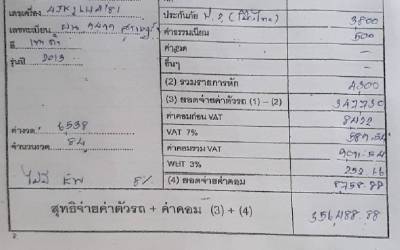 เลขเครื่อง 4JK1LHA181
ประกันภัย ป.2 (   ) 3,800
เลขทะเบียน
ค่าธรรมเนียม 500
สี
ค่างวด -
รุ่นปี 2013
อื่นๆ -
(2) รวมรายการหัก 4,300
(3) ยอดจ่ายค่าตัวรถ (1) - (2) 347,730
ค่าคอมก่อน VAT 8422
ค่างวด. 6,538
VAT 7% 589.54
จำนวนงวด. 84
ค่าคอมรวม VAT 9011.54
WHT 3% 252.66
ไม่มี 8%
(4) ยอดจ่ายค่าคอม 8758.88
สุทธิจ่ายค่าตัวรถ + ค่าคอม (3) + (4) 356,488.88